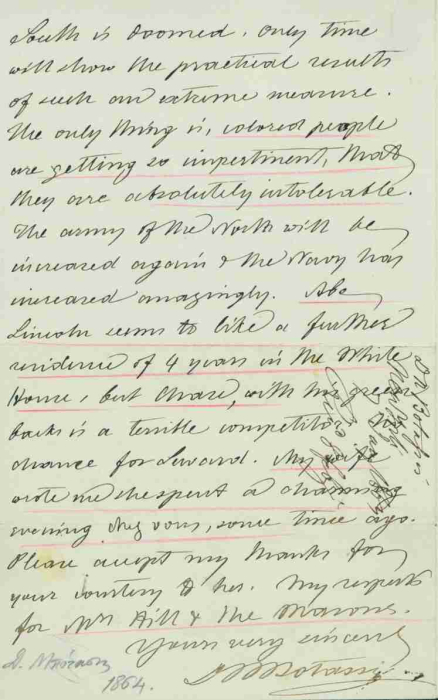 South is doomed. Only time
will show the practical results
of such an extreme measure.
The only thing is, colored people
are getting so impertinent, that
they are absolutely intolerable.
The army of the North will be
increased again & the Navy has
increased amazingly. Abe
Lincoln seems to like a further
residence of 4 years in the White
House, but Chase, with his green
backs is a terrible competitor
chance for Seward. My wife
wrote me she spent a charming
evening chez vous, some time ago.
Please accept my thanks for
your courtesy to her. My respects
for Mrs Hill & the
Yours very sincerely
D. Μπότασης
1864.